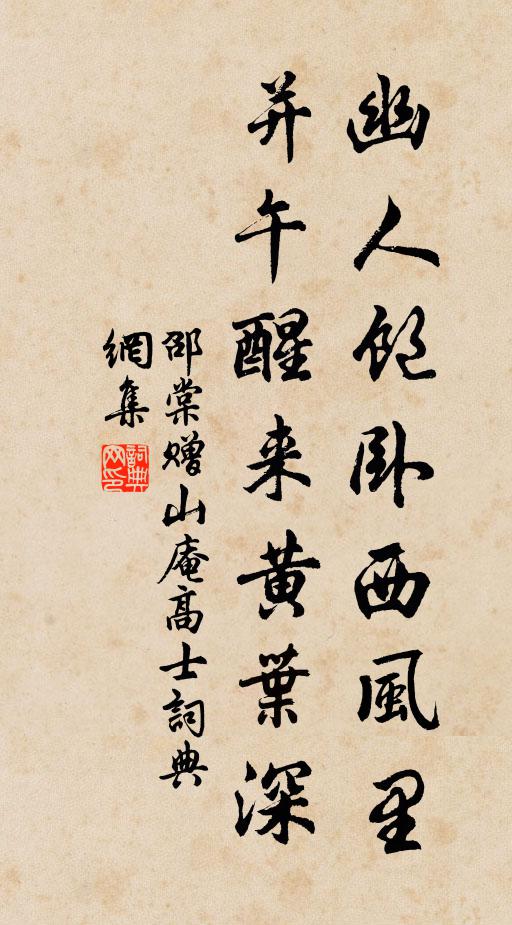 幽人飽卧西風里
并午醒来黄葉深
邵棠赠山庵高士詞典
網集
詞典网印